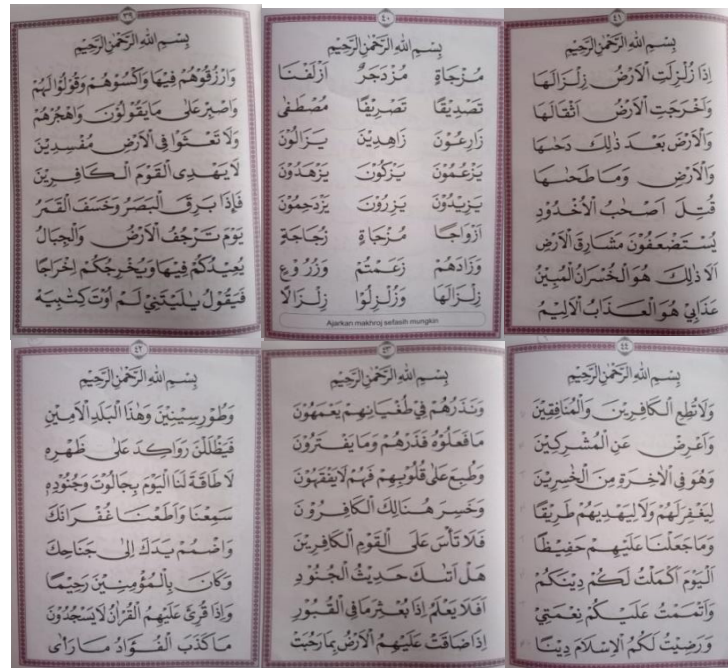 ٣٩
بِسْمِ اللهِ الرَّحْمٰنِ الرَّحِيْمِ
وَارْزُقُوْهُمْ فِيْهَا وَاكْسُوْهُمْ وَقُوْلُوْا لَهُمْ
وَاصْبِرْ عَلٰى مَا يَقُوْلُوْنَ وَاهْجُرْهُمْ
وَلَا تَعْثَوْا فِى الْاَرْضِ مُفْسِدِيْنَ
لَا يَهْدِى الْقَوْمَ الْكَافِرِيْنَ
فَاِذَا بَرِقَ الْبَصَرُ وَخَسَفَ الْقَمَرُ
يَوْمَ تَرْجُفُ الْاَرْضُ وَالْجِبَالُ
يُعِيْدُكُمْ فِيْهَا وَيُخْرِجُكُمْ اِخْرَاجًا
فَيَقُوْلُ يٰلَيْتَنِيْ لَمْ اُوْتَ كِتٰبِيَهْ
٤٠
بِسْمِ اللهِ الرَّحْمٰنِ الرَّحِيْمِ
مُزْجَاةٍ مُزْدَجَرٌ اَزْلَفْنَا
تَصْدِيْقًا تَصْرِيْفًا مُصْطَفٰى
زَارِعُوْنَ زَاهِدِيْنَ يَزَالُوْنَ
يَزْعُمُوْنَ يَزْكُوْنَ يَزْهَدُوْنَ
يَزِيْدُوْنَ يَزِرُوْنَ يَزْدَحِمُوْنَ
اَزْوَاجًا مُزْجَاةٍ زُجَاجَةٍ
وَزَادَهُمْ زَعَمْتُمْ وَزُرُوْعٍ
زِلْزَالَهَا وَزُلْزِلُوْا زِلْزَالًا
Ajarkan makhroj sefasih mungkin
٤١
بِسْمِ اللهِ الرَّحْمٰنِ الرَّحِيْمِ
اِذَا زُلْزِلَتِ الْاَرْضُ زِلْزَالَهَا
وَاَخْرَجَتِ الْاَرْضُ اَثْقَالَهَا
وَالْاَرْضَ بَعْدَ ذٰلِكَ دَحٰهَا
وَالْاَرْضِ وَمَا طَحٰهَا
قُتِلَ اَصْحٰبُ الْاُخْدُوْدِ
يُسْتَضْعَفُوْنَ مَشَارِقَ الْاَرْضِ
اَلَا ذٰلِكَ هُوَ الْخُسْرَانُ الْمُبِيْنُ
عَذَابِيْ هُوَ الْعَذَابُ الْاَلِيْمُ
٤٢
بِسْمِ اللهِ الرَّحْمٰنِ الرَّحِيْمِ
وَطُوْرِ سِيْنِيْنَ وَهٰذَا الْبَلَدِ الْاَمِيْنِ
فَيَظْلَلْنَ رَوَاكِدَ عَلٰى ظَهْرِهٖ
لَا طَاقَةَ لَنَا الْيَوْمَ بِجَالُوْتَ وَجُنُوْدِهٖ
سَمِعْنَا وَاَطَعْنَا غُفْرَانَكَ
وَاضْمُمْ يَدَكَ اِلٰى جَنَاحِكَ
وَكَانَ بِالْمُؤْمِنِيْنَ رَحِيْمًا
وَاِذَا قُرِئَ عَلَيْهِمُ الْقُرْاٰنُ لَا يَسْجُدُوْنَ
مَا كَذَبَ الْفُؤَادُ مَا رَاٰى
٤٣
بِسْمِ اللهِ الرَّحْمٰنِ الرَّحِيْمِ
وَنَذَرُهُمْ فِيْ طُغْيَانِهِمْ يَعْمَهُوْنَ
مَا فَعَلُوْهُ فَذَرْهُمْ وَمَا يَفْتَرُوْنَ
وَطُبِعَ عَلٰى قُلُوْبِهِمْ فَهُمْ لَا يَفْقَهُوْنَ
وَخَسِرَ هُنَالِكَ الْكَافِرُوْنَ
فَلَا تَأْسَ عَلَى الْقَوْمِ الْكَافِرِيْنَ
هَلْ اَتٰىكَ حَدِيْثُ الْجُنُوْدِ
اَفَلَا يَعْلَمُ اِذَا بُعْثِرَ مَا فِى الْقُبُوْرِ
اِذَا ضَاقَتْ عَلَيْهِمُ الْاَرْضُ بِمَا رَحُبَتْ
٤٤
بِسْمِ اللهِ الرَّحْمٰنِ الرَّحِيْمِ
وَلَا تُطِعِ الْكَافِرِيْنَ وَالْمُنَافِقِيْنَ
وَاَعْرِضْ عَنِ الْمُشْرِكِيْنَ
وَهُوَ فِى الْاٰخِرَةِ مِنَ الْخٰسِرِيْنَ
لِيَغْفِرَ لَهُمْ وَلَا لِيَهْدِيَهُمْ طَرِيْقًا
وَمَا جَعَلْنَا عَلَيْهِمْ حَفِيْظًا
اَلْيَوْمَ اَكْمَلْتُ لَكُمْ دِيْنَكُمْ
وَاَتْمَمْتُ عَلَيْكُمْ نِعْمَتِيْ
وَرَضِيْتُ لَكُمُ الْاِسْلَامَ دِيْنًا